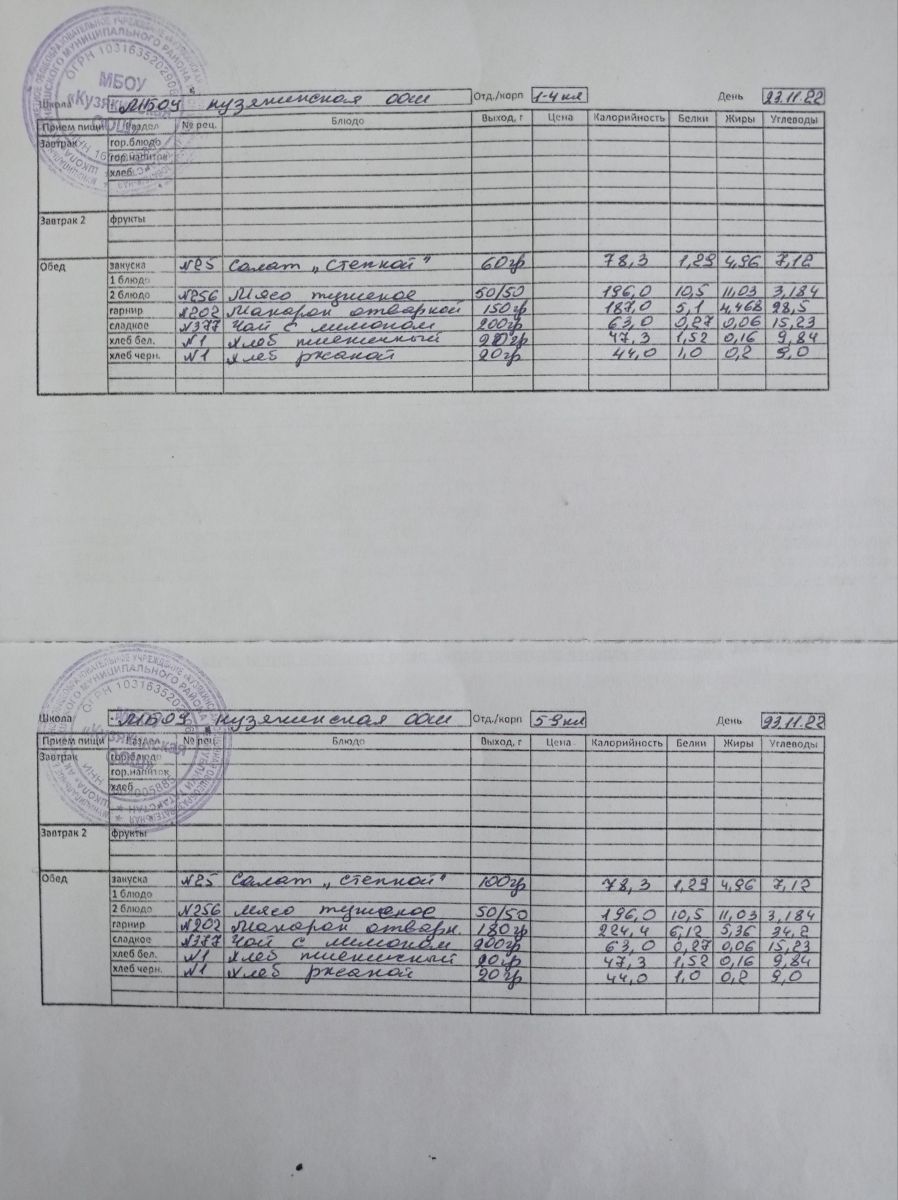 МБОУ
«Кузякинская
ООШ»
Школа МБОУ Кузякинская ООШ Отд./корп 1-4 кл День 23.11.22
Прием пищи Раздел № рец. Блюдо Выход, г Цена Калорийность Белки Жиры Углеводы
Завтрак гор.блюдо
гор.напиток
хлеб
Завтрак 2 фрукты
Обед закуска №25 Салат „Степной" 60гр 78,3 1,29 4,96 7,12
1 блюдо
2 блюдо №256 Мясо тушеное 50/50 196,0 10,5 11,03 3,184
гарнир №202 Макарон отварной 150гр 187,0 5,1 4,468 28,5
сладкое №377 Чай с лимоном 200гр 63,0 0,27 0,06 15,23
хлеб бел. №1 Хлеб пшеничный 20гр 47,3 1,52 0,16 9,84
хлеб черн. №1 Хлеб ржаной 20гр 44,0 1,0 0,2 9,0
Школа МБОУ Кузякинская ООШ Отд./корп 5-9 кл День 23.11.22
Прием пищи Раздел № рец. Блюдо Выход, г Цена Калорийность Белки Жиры Углеводы
Завтрак гор.блюдо
гор.напиток
хлеб
Завтрак 2 фрукты
Обед закуска №25 Салат „Степной" 100гр 78,3 1,29 4,96 7,12
1 блюдо
2 блюдо №256 Мясо тушеное 50/50 196,0 10,5 11,03 3,184
гарнир №202 Макарон отварн. 180гр 224,4 6,12 5,36 34,2
сладкое №377 Чай с лимоном 200гр 63,0 0,27 0,06 15,23
хлеб бел. №1 Хлеб пшеничный 20гр 47,3 1,52 0,16 9,84
хлеб черн. №1 Хлеб ржаной 20гр 44,0 1,0 0,2 9,0